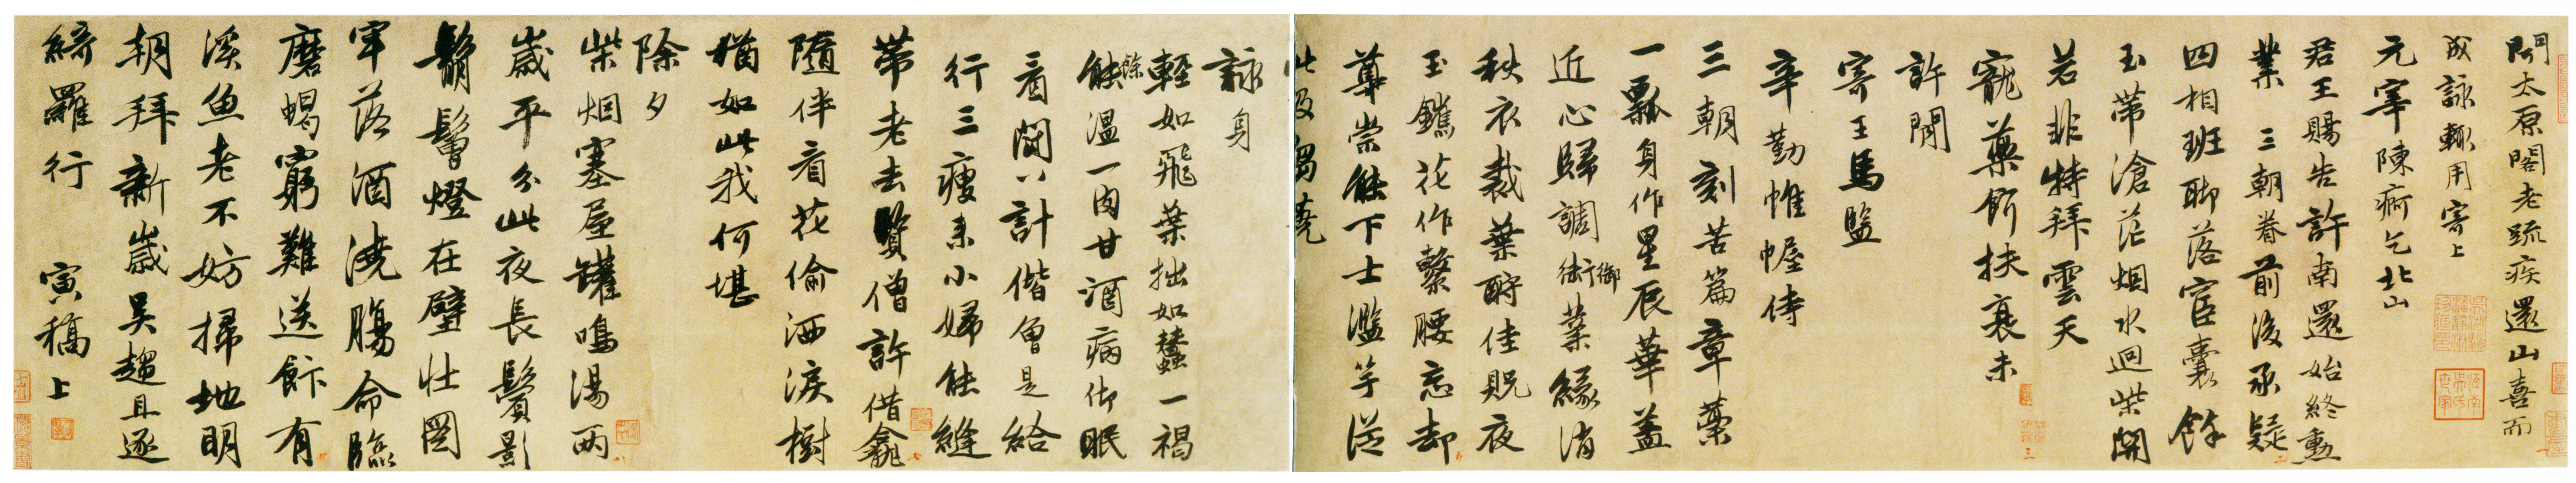 聞太原閣老疏疾還山喜而
成詠輒用寄上
元宰陳痾乞北山
君王賜告許南還始終勳
業三朝眷前後丞疑
四相班聊落宦囊餘
玉帶滄茫烟水迥柴關
若非特拜雲天
寵藥餌扶衰未
許閒
寄王馬監
辛勤帷幄侍
三朝刻苦篇章藁
一瓢身作星辰華蓋
近心歸調御葉緣消
秋衣裁葉酧佳貺夜
玉鑣花作繫腰忘却
尊崇能下士濫竽從
此
詠身
輕如飛葉拙如蠶一褐
餘溫一肉甘酒病御眠
看鬪八計偕曾是給
行三瘦來小婦能縫
帶老去賢僧許借龕
隨伴看花偷洒淚樹
猶如此我何堪
除夕
柴烟塞屋罐鳴湯兩
歲平分此夜長鬢影
鬅鬙燈在壁壯圖
牢落酒澆腸命臨
磨蝎窮難送飰有
溪魚老不妨掃地明
朝拜新歲吳趨且逐
綺羅行 寅稿上